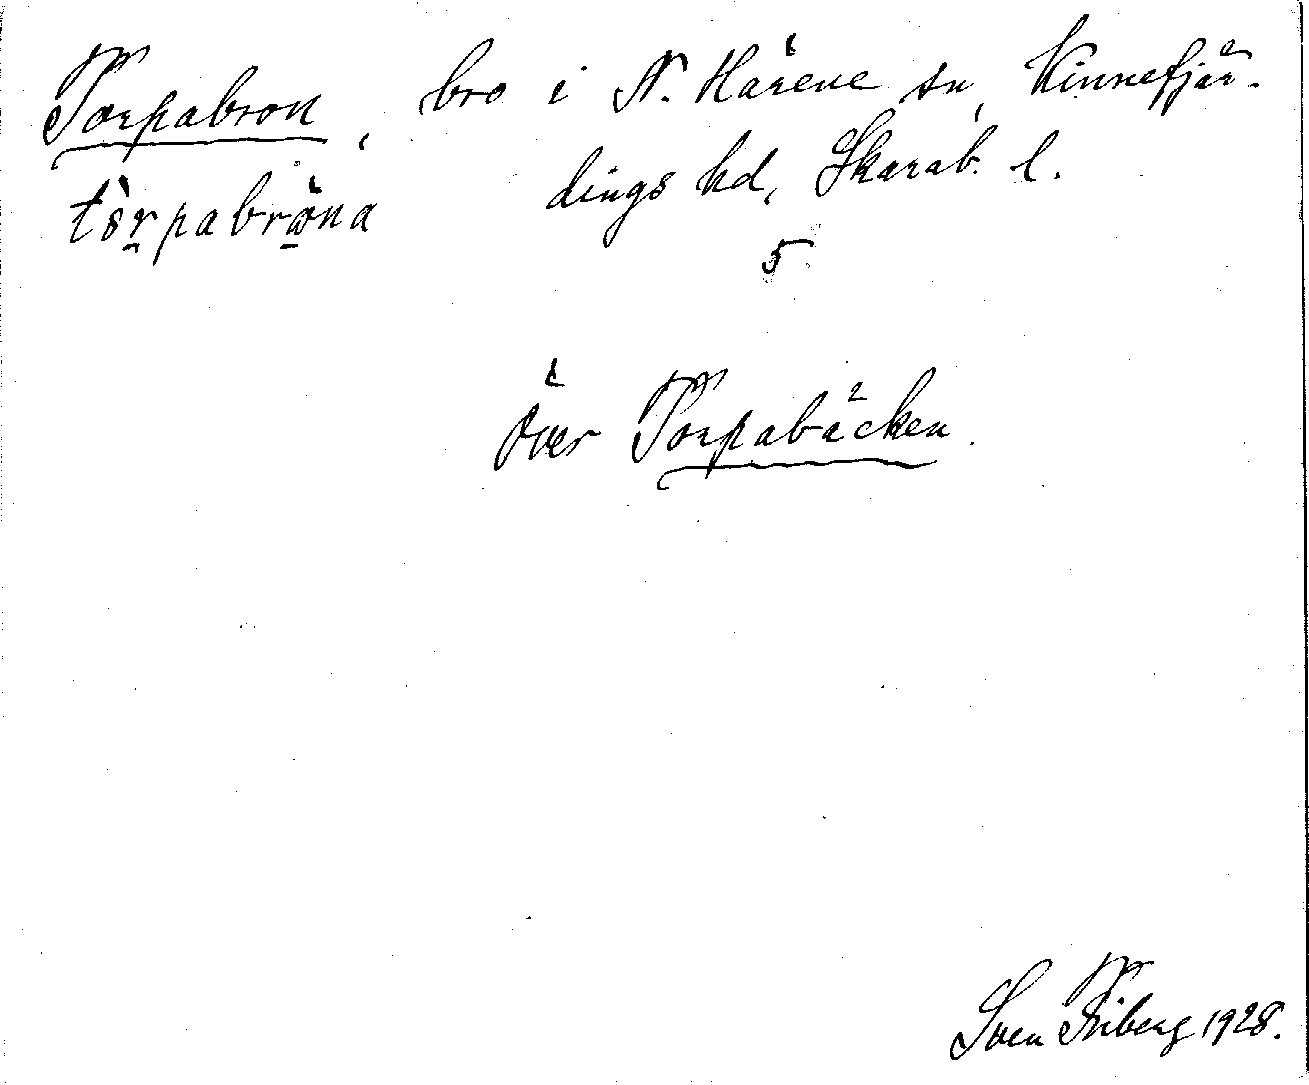 Torpabron, bro i N. Härene sn, Kinnefjär-
tòrpabròna dings hd, Skarab. l.
5
över Torpabäcken.
Sven Friberg 1928.